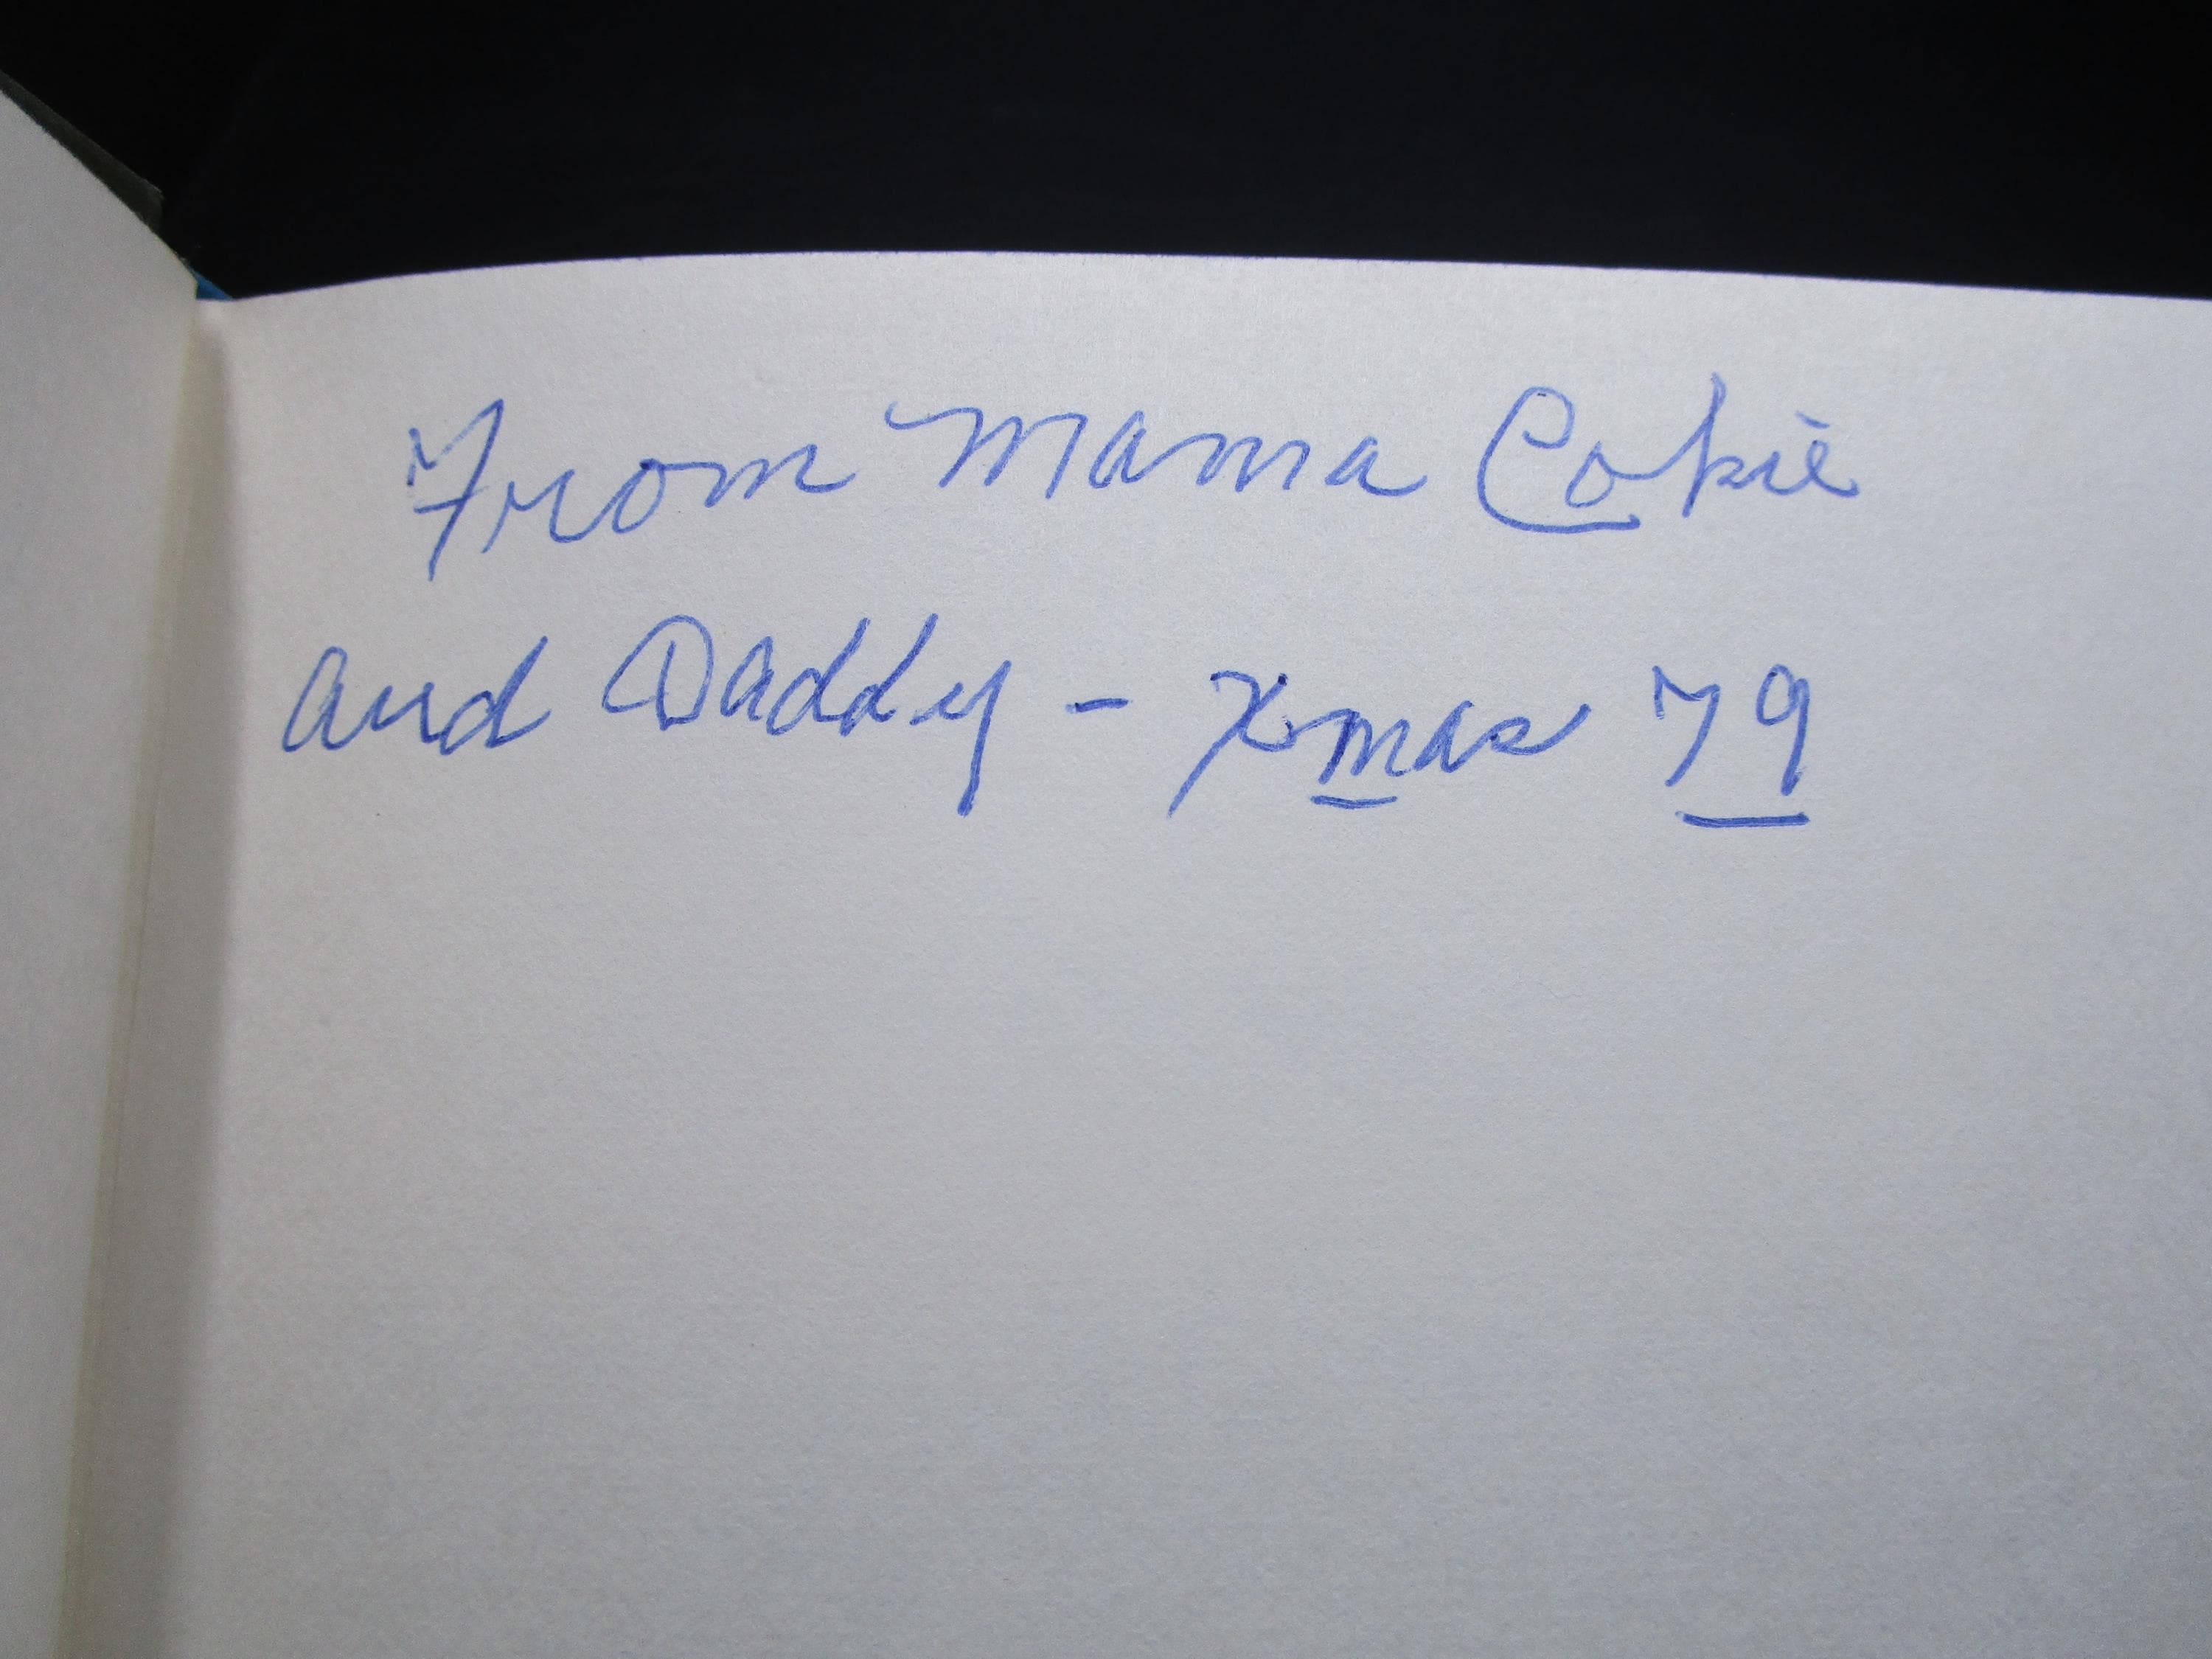 From Mama Cokie
and Daddy - Xmas 79